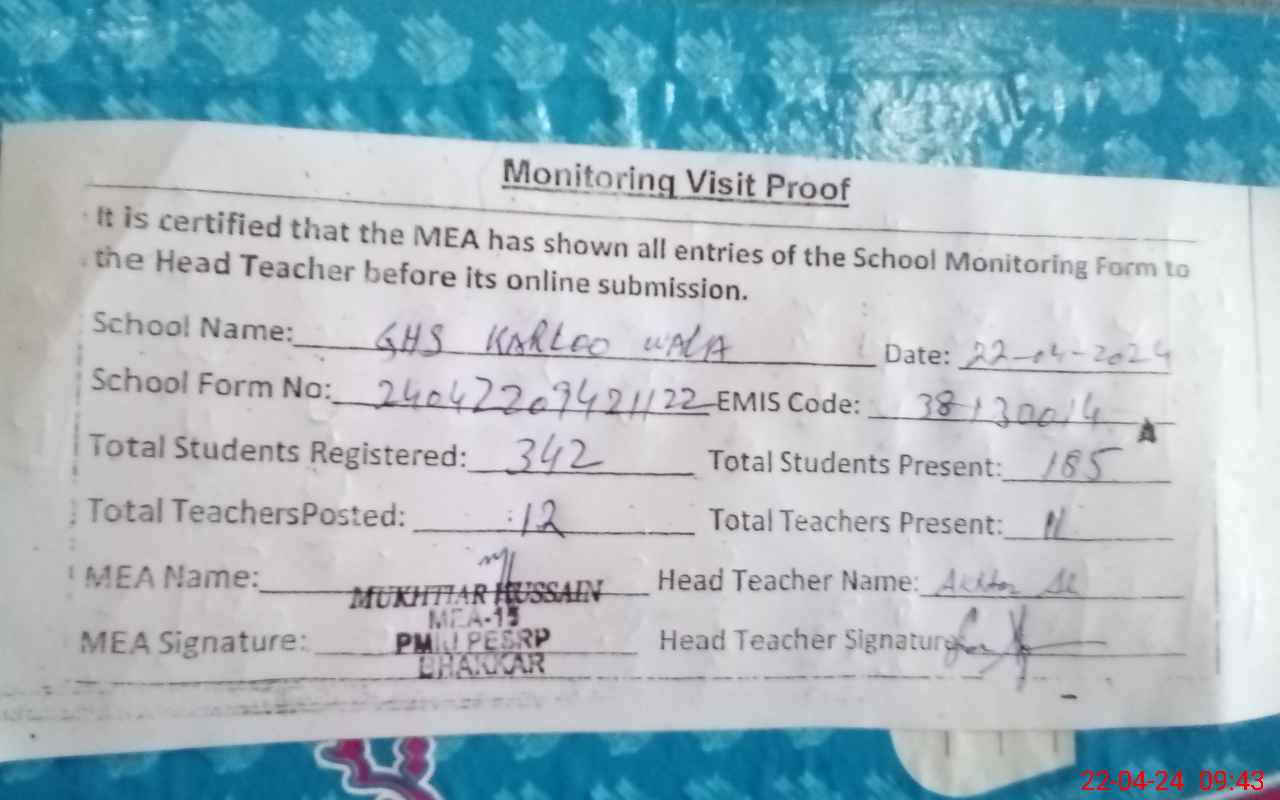 Monitoring Visit Proof
It is certified that the MEA has shown all entries of the School Monitoring Form to
the Head Teacher before its online submission.
School Name: GHS KARLOO WALA Date: 22-04-2024
School Form No: 24042209421122 EMIS Code: 38130014
A
Total Students Registered: 342 Total Students Present: 185
Total TeachersPosted: 12 Total Teachers Present: 11
MEA Name: MUKHTIAR HUSSAIN Head Teacher Name: Akhtar
MEA-15
MEA Signature: PMIU PESRP Head Teacher Signature
BHAKKAR
22-04-24 09:43